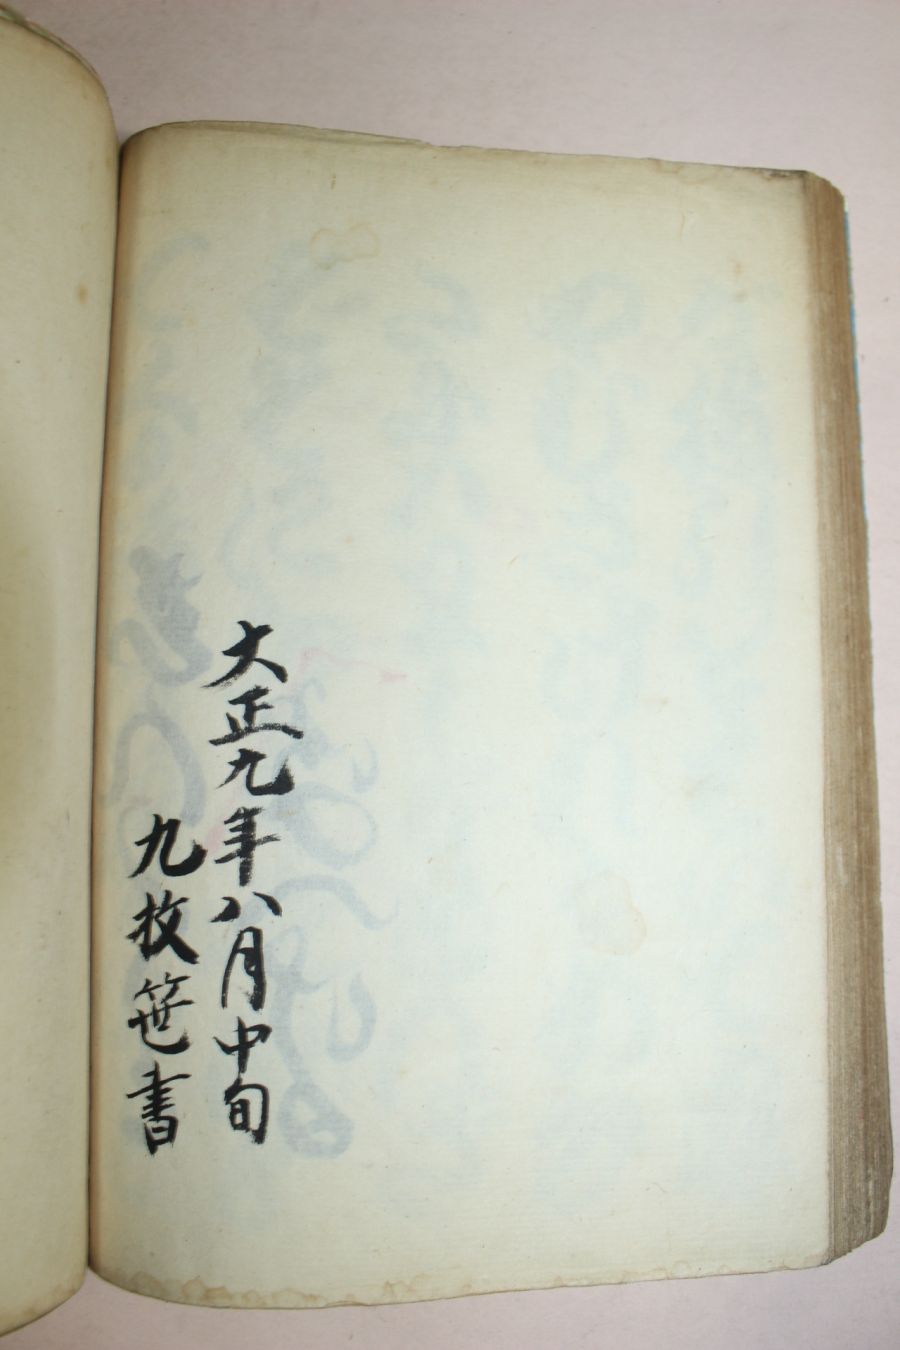 大正九年八月中旬
九枚笹書